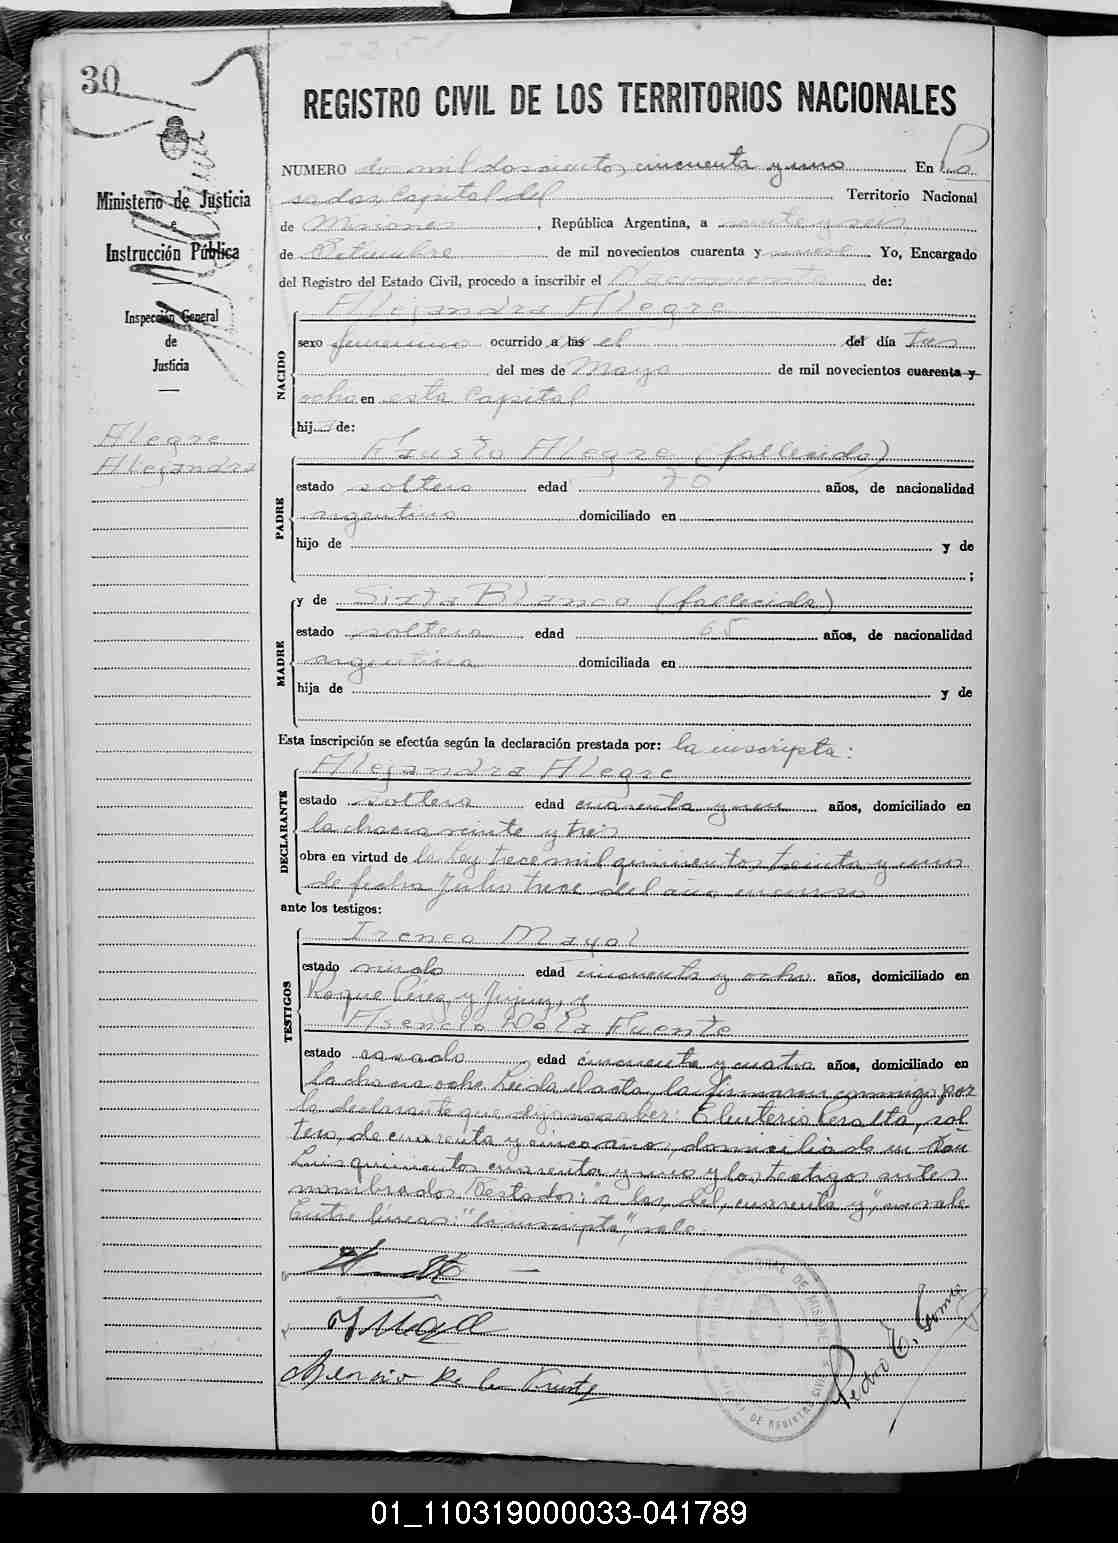 30
REGISTRO CIVIL DE LOS TERRITORIOS NACIONALES
Ministerio de Justicia
e
Instrucción Pública
Inspección General
de
Justicia
Alegre
Alejandra
NUMERO dos mil doscientos cincuenta y uno En Po
sadas Capital del Territorio Nacional
de Misiones, República Argentina, a veinte y seis
de Octubre de mil novecientos cuarenta y nueve Yo, Encargado
del Registro del Estado Civil, procedo a inscribir el Nacimiento de:
NACIDO
Alejandra Alegre
sexo femenino ocurrido a las el del día tres
del mes de Mayo de mil novecientos cuarenta y
ocho en esta Capital
hija de:
PADRE
Fausto Alegre (fallecido)
estado soltero edad 70 años, de nacionalidad
argentino domiciliado en
hijo de y de
;
MADRE
y de Sixta Blanco (fallecida)
estado soltera edad 65 años, de nacionalidad
argentina domiciliada en
hija de y de
Esta inscripción se efectúa según la declaración prestada por: la inscripta:
DECLARANTE
Alejandra Alegre
estado soltera edad cuarenta y un años, domiciliado en
la chacra veinte y tres
obra en virtud de la Ley trece mil quinientos treinta y uno
de fecha Julio trece del año en curso
ante los testigos:
TESTIGOS
Ireneo Mayol
estado viudo edad cincuenta y ocho años, domiciliado en
Roque Pérez y Jujuy, y
Asencio De la Fuente
estado casado edad cincuenta y cuatro años, domiciliado en
la chacra ocho Leída el acta, la firmaron conmigo, por
la declarante que dijo no saber: Eleuterio Peralta, sol-
tero, de cuarenta y cinco años, domiciliado en San
Luis quinientos cuarenta y uno y los testigos antes
nombrados. Testados: "a las, del, cuarenta y", no vale.
Entre líneas: "la inscripta", vale.
I Mayol
Asencio De la Fuente
Pedro E. Gomez
01_110319000033-041789